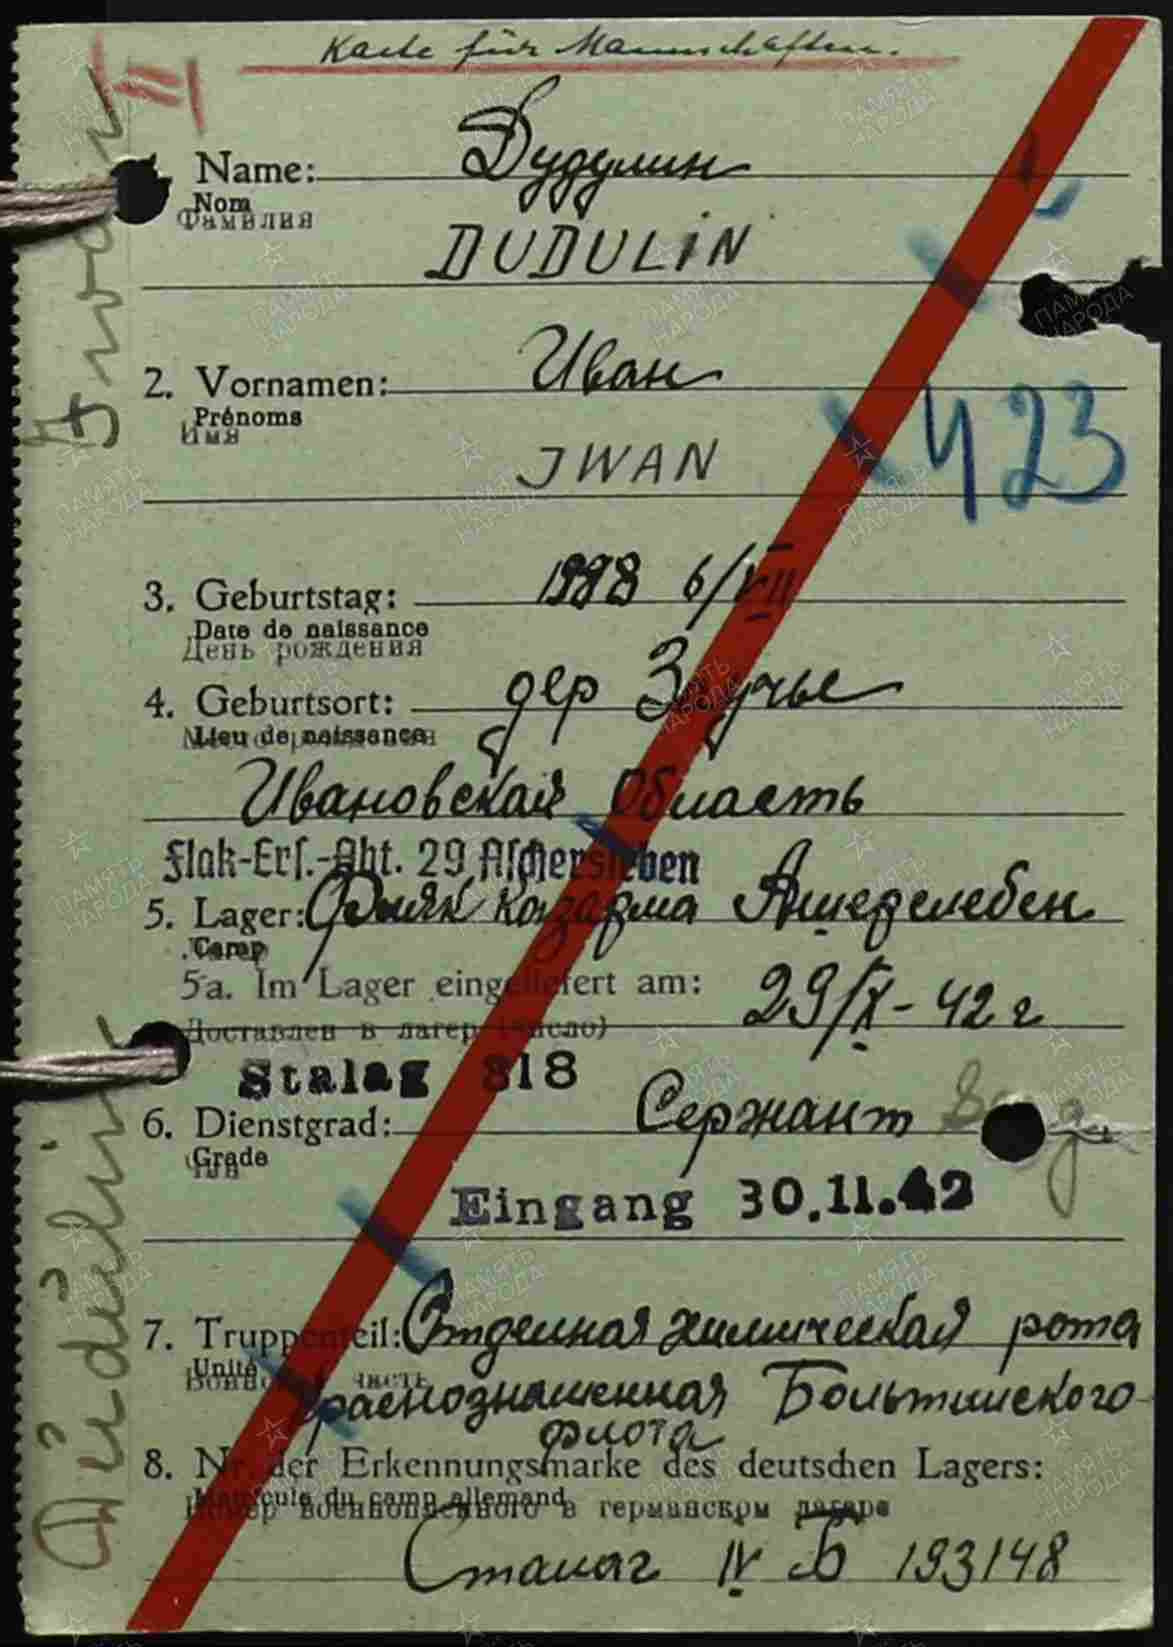 Karte für Mannschaften.
II
Name: Дудулин
Nom
Фамилия
DUDULIN
2. Vornamen: Иван
Prénoms
Имя
IWAN
423
3. Geburtstag: 6/VII
Date de naissance
День рождения
4. Geburtsort: дер
Lieu de naissance
Ивановская область
Flak-Ers.-Abt. 29 Aschersleben
5. Lager: Фляк казарма Ашерслебен
Camp
5a. Im Lager eingeliefert am: 29/X-42 г
Доставлен в лагерь (число)
Stalag 318
6. Dienstgrad: Сержант
Grade
Чин
Eingang 30.11.42
7. Truppenteil: Отделная химическая рота
Unité
Воинск. часть
Краснознаменная Болытийского
флота
8. Nr. der Erkennungsmarke des deutschen Lagers:
Matricule du camp allemand
Номер военнопленного в германском лагере
Сталаг IV Б 193148
Dudulin Iwan
ПАМЯТЬ
НАРОДА